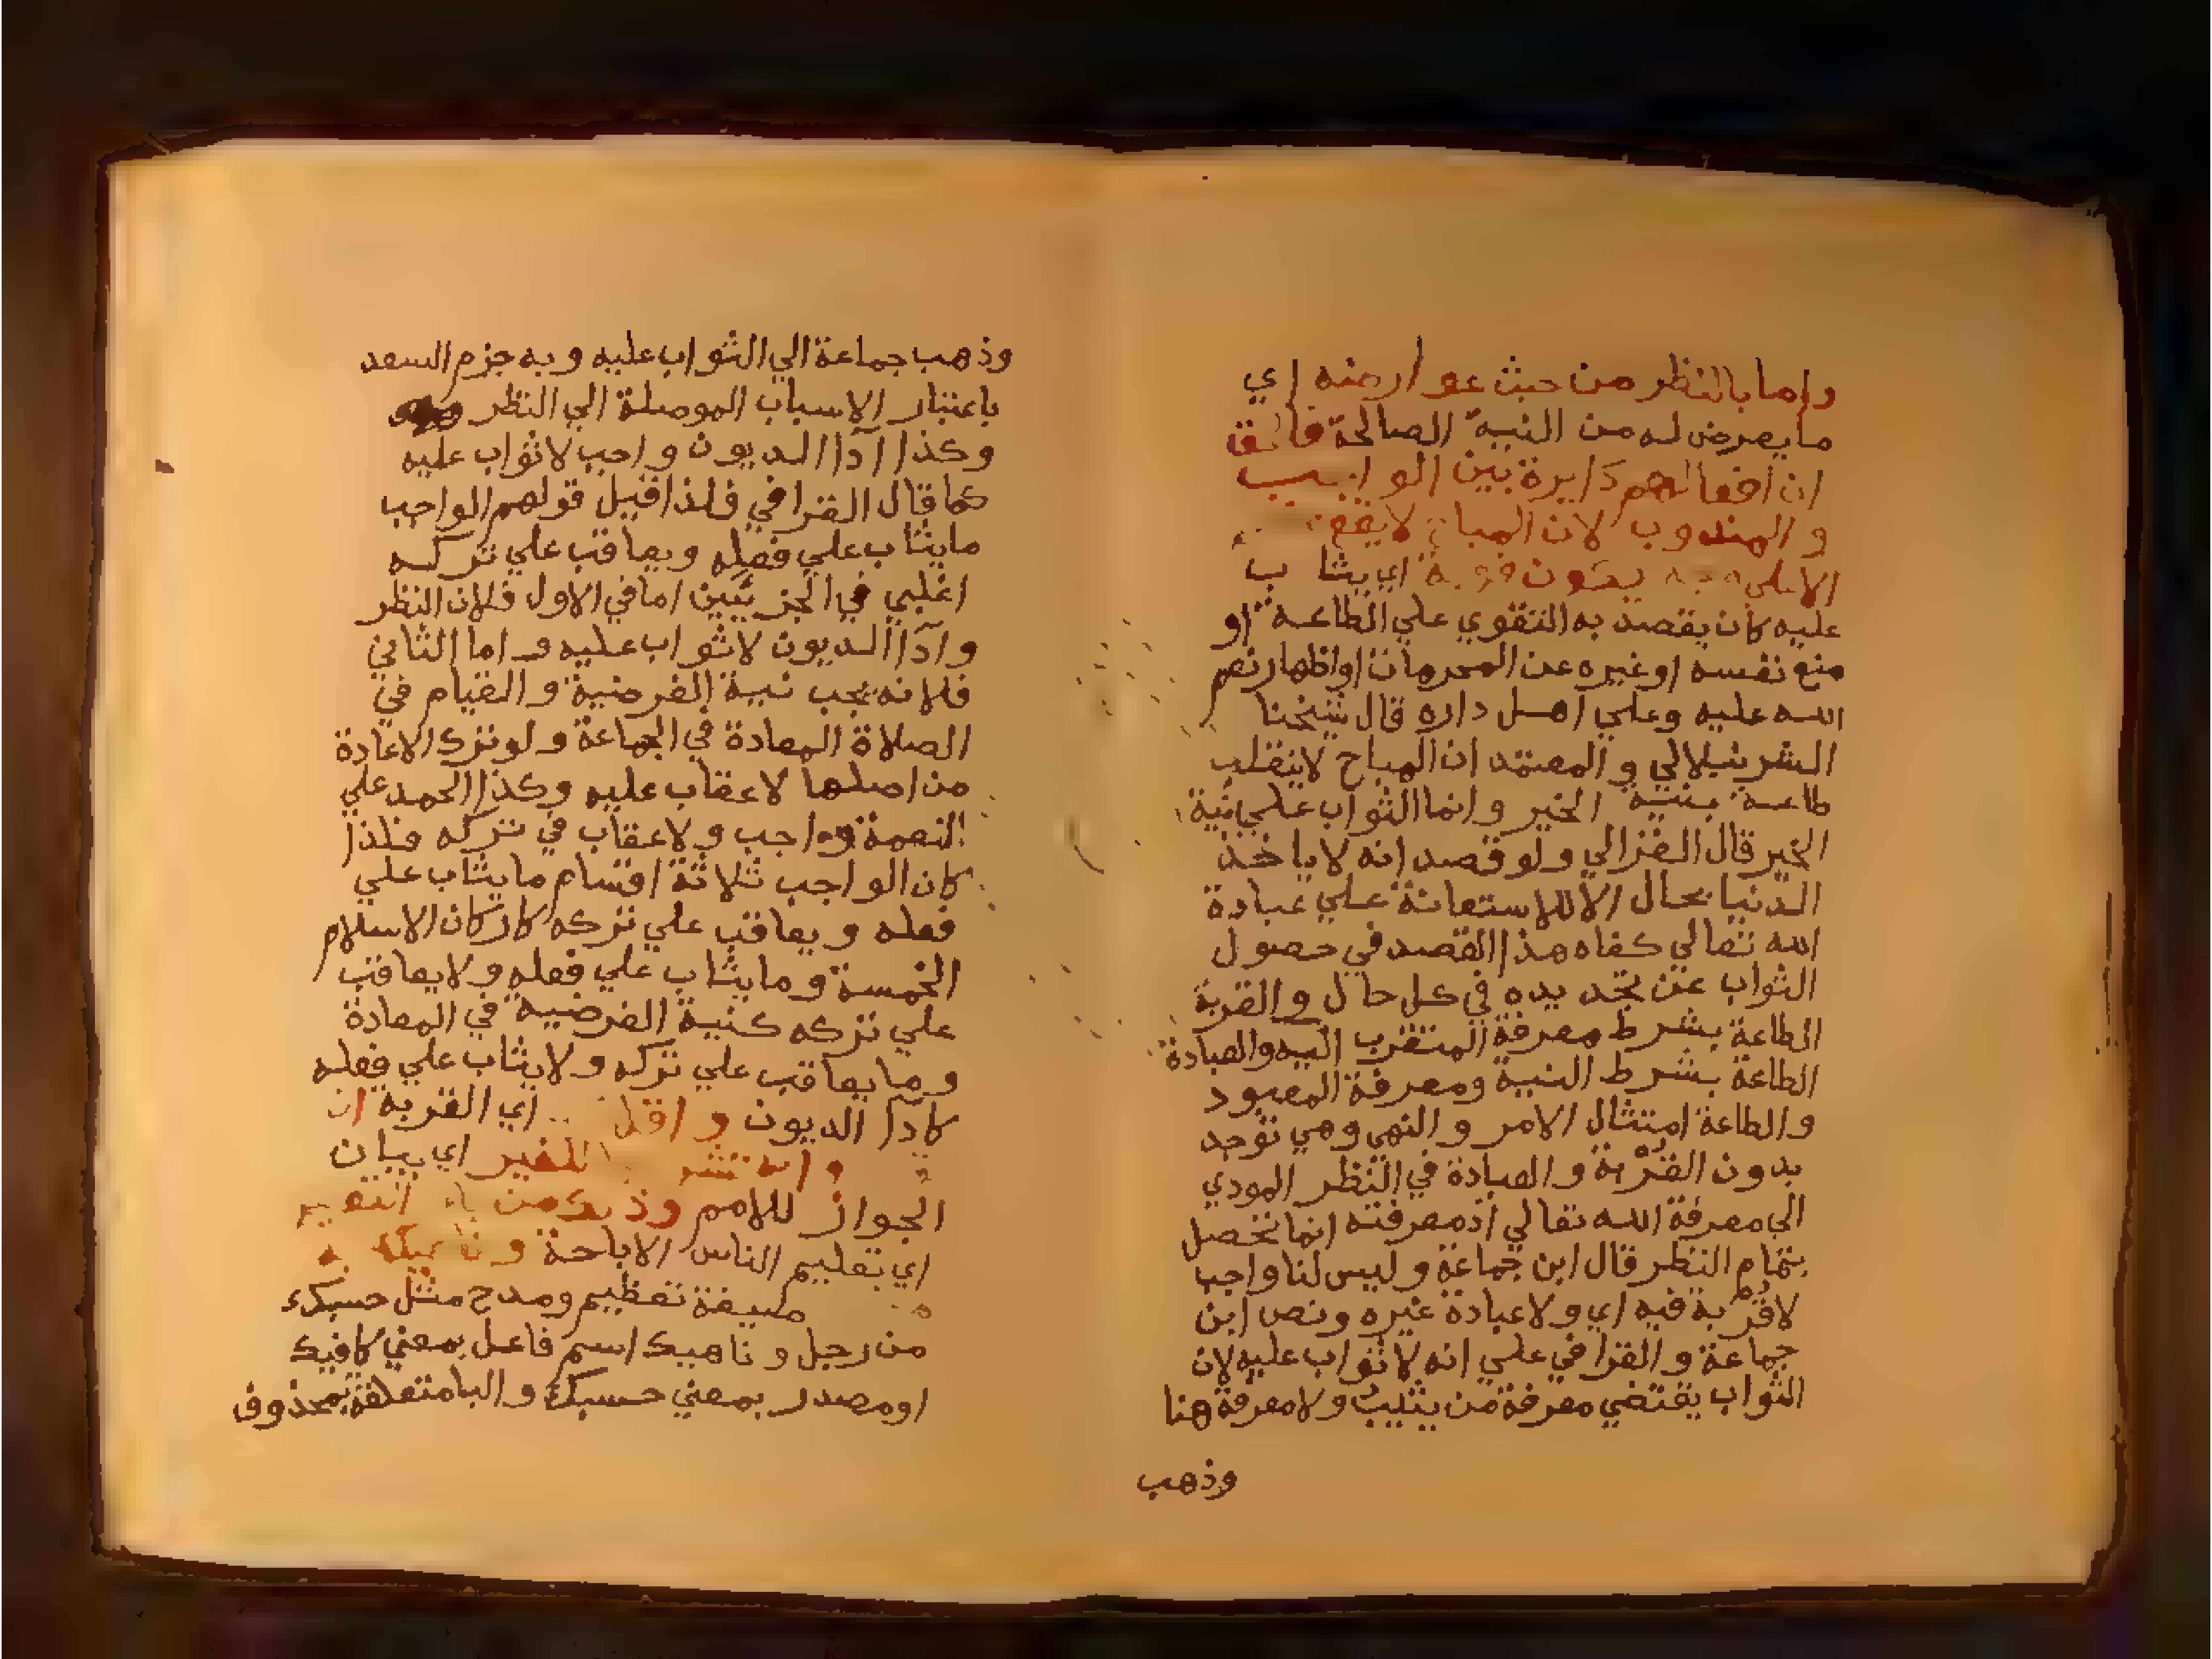 واما بالنظر من حيث عوارضه اي
ما يعرض له من النية الصالحة فالحق
ان افعالهم دايرة بين الواجب
والمندوب لان المباح لا يقع
الا علي وجه يكون قربة اي يثاب
عليه كان يقصد به التقوي علي الطاعة او
منع نفسه او غيره عن المحرمات او اظهار نعم
الله عليه وعلي اهل داره قال شيخنا
الشرنبلالي والمعتمد ان المباح لا ينقلب
طاعة بنية الخير وانما الثواب علي نية
الخير قال الغزالي ولو قصد انه لا ياخذ
الدنيا بحال الا للاستعانة علي عبادة
الله تعالي كفاه هذا القصد في حصول
الثواب عن تجديده في كل حال والقربة
الطاعة بشرط معرفة المتقرب اليه والعبادة
الطاعة بشرط النية ومعرفة المعبود
والطاعة امتثال الامر والنهي وهي توجد
بدون القُرْبة والعبادة في النظر المودي
الي معرفة الله تعالي اذ معرفته انما تحصل
بتمام النظر قال ابن جماعة وليس لنا واجب
لا قُرْبة فيه اي ولا عبادة غيره ونص ابن
جماعة والقرافي علي انه لا ثواب عليه لان
الثواب يقتضي معرفة من يثيب ولا معرفة هنا
وذهب
وذهب جماعة الي الثواب عليه وبه جزم السعد
باعتبار الاسباب الموصلة الي النظر
وكذا آدا الديون واجب لا ثواب عليه
كما قال القرافي فلذا قيل قولهم الواجب
ما يثاب علي فعله ويعاقب علي تركه
اغلبي في الجزئين اما في الاول فلان النظر
وآدا الديون لا ثواب عليه واما الثاني
فلانه يجب نية الفرضية والقيام في
الصلاة المعادة في الجماعة ولو ترك الاعادة
من اصلها لا عقاب عليه وكذا الحمد علي
النعمة واجب ولا عقاب في تركه فلذا
كان الواجب ثلاثة اقسام ما يثاب علي
فعله ويعاقب علي تركه كاركان الاسلام
الخمسة وما يثاب علي فعله ولا يعاقب
علي تركه كنية الفرضية في المعادة
وما يعاقب علي تركه ولا يثاب علي فعله
كآدا الديون واقل اي القربة ان
للغير اي بيان
الجواز للامم وذلك من باب التعليم
اي تعليم الناس الاباحة وناهيك به
صيغة تعظيم ومدح مثل حسبك
من رجل وناهيك اسم فاعل بمعني كافيك
او مصدر بمعني حسبك والبا متعلقة بمحذوف